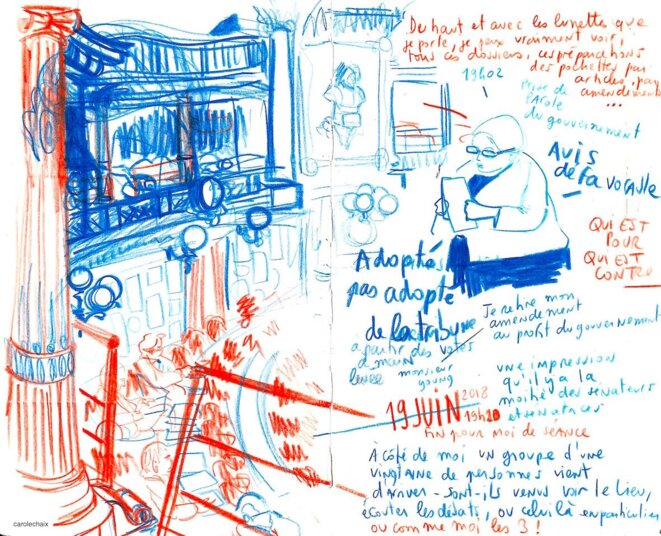 Du haut et avec les lunettes que
je porte, je peux vraiment voir,
tous ces dossiers, ces préparations
des pochettes par
articles, par
amendements
...
19h02
prise de
parole
du gouvernement
Avis
défavorable
QUI EST
POUR
QUI EST
CONTRE
Adoptés
pas adopté
de la tribune
à partir des votes
à main
levée
monsieur
Je retire mon
amendement
au profit du gouvernement
une impression
qu'il y a la
moitié des sénateurs
et sénatrices
19 JUIN 2018
19h20
fin pour moi de séance
À côté de moi un groupe d'une
vingtaine de personnes vient
d'arriver - sont-ils venus voir le lieu,
écouter les débats, ou celui là en particulier
ou comme moi les 3 !
carolechaix